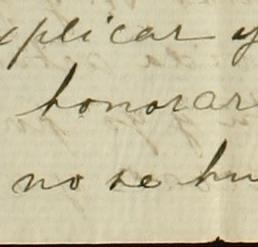 xplicar y
honorar
no se hu